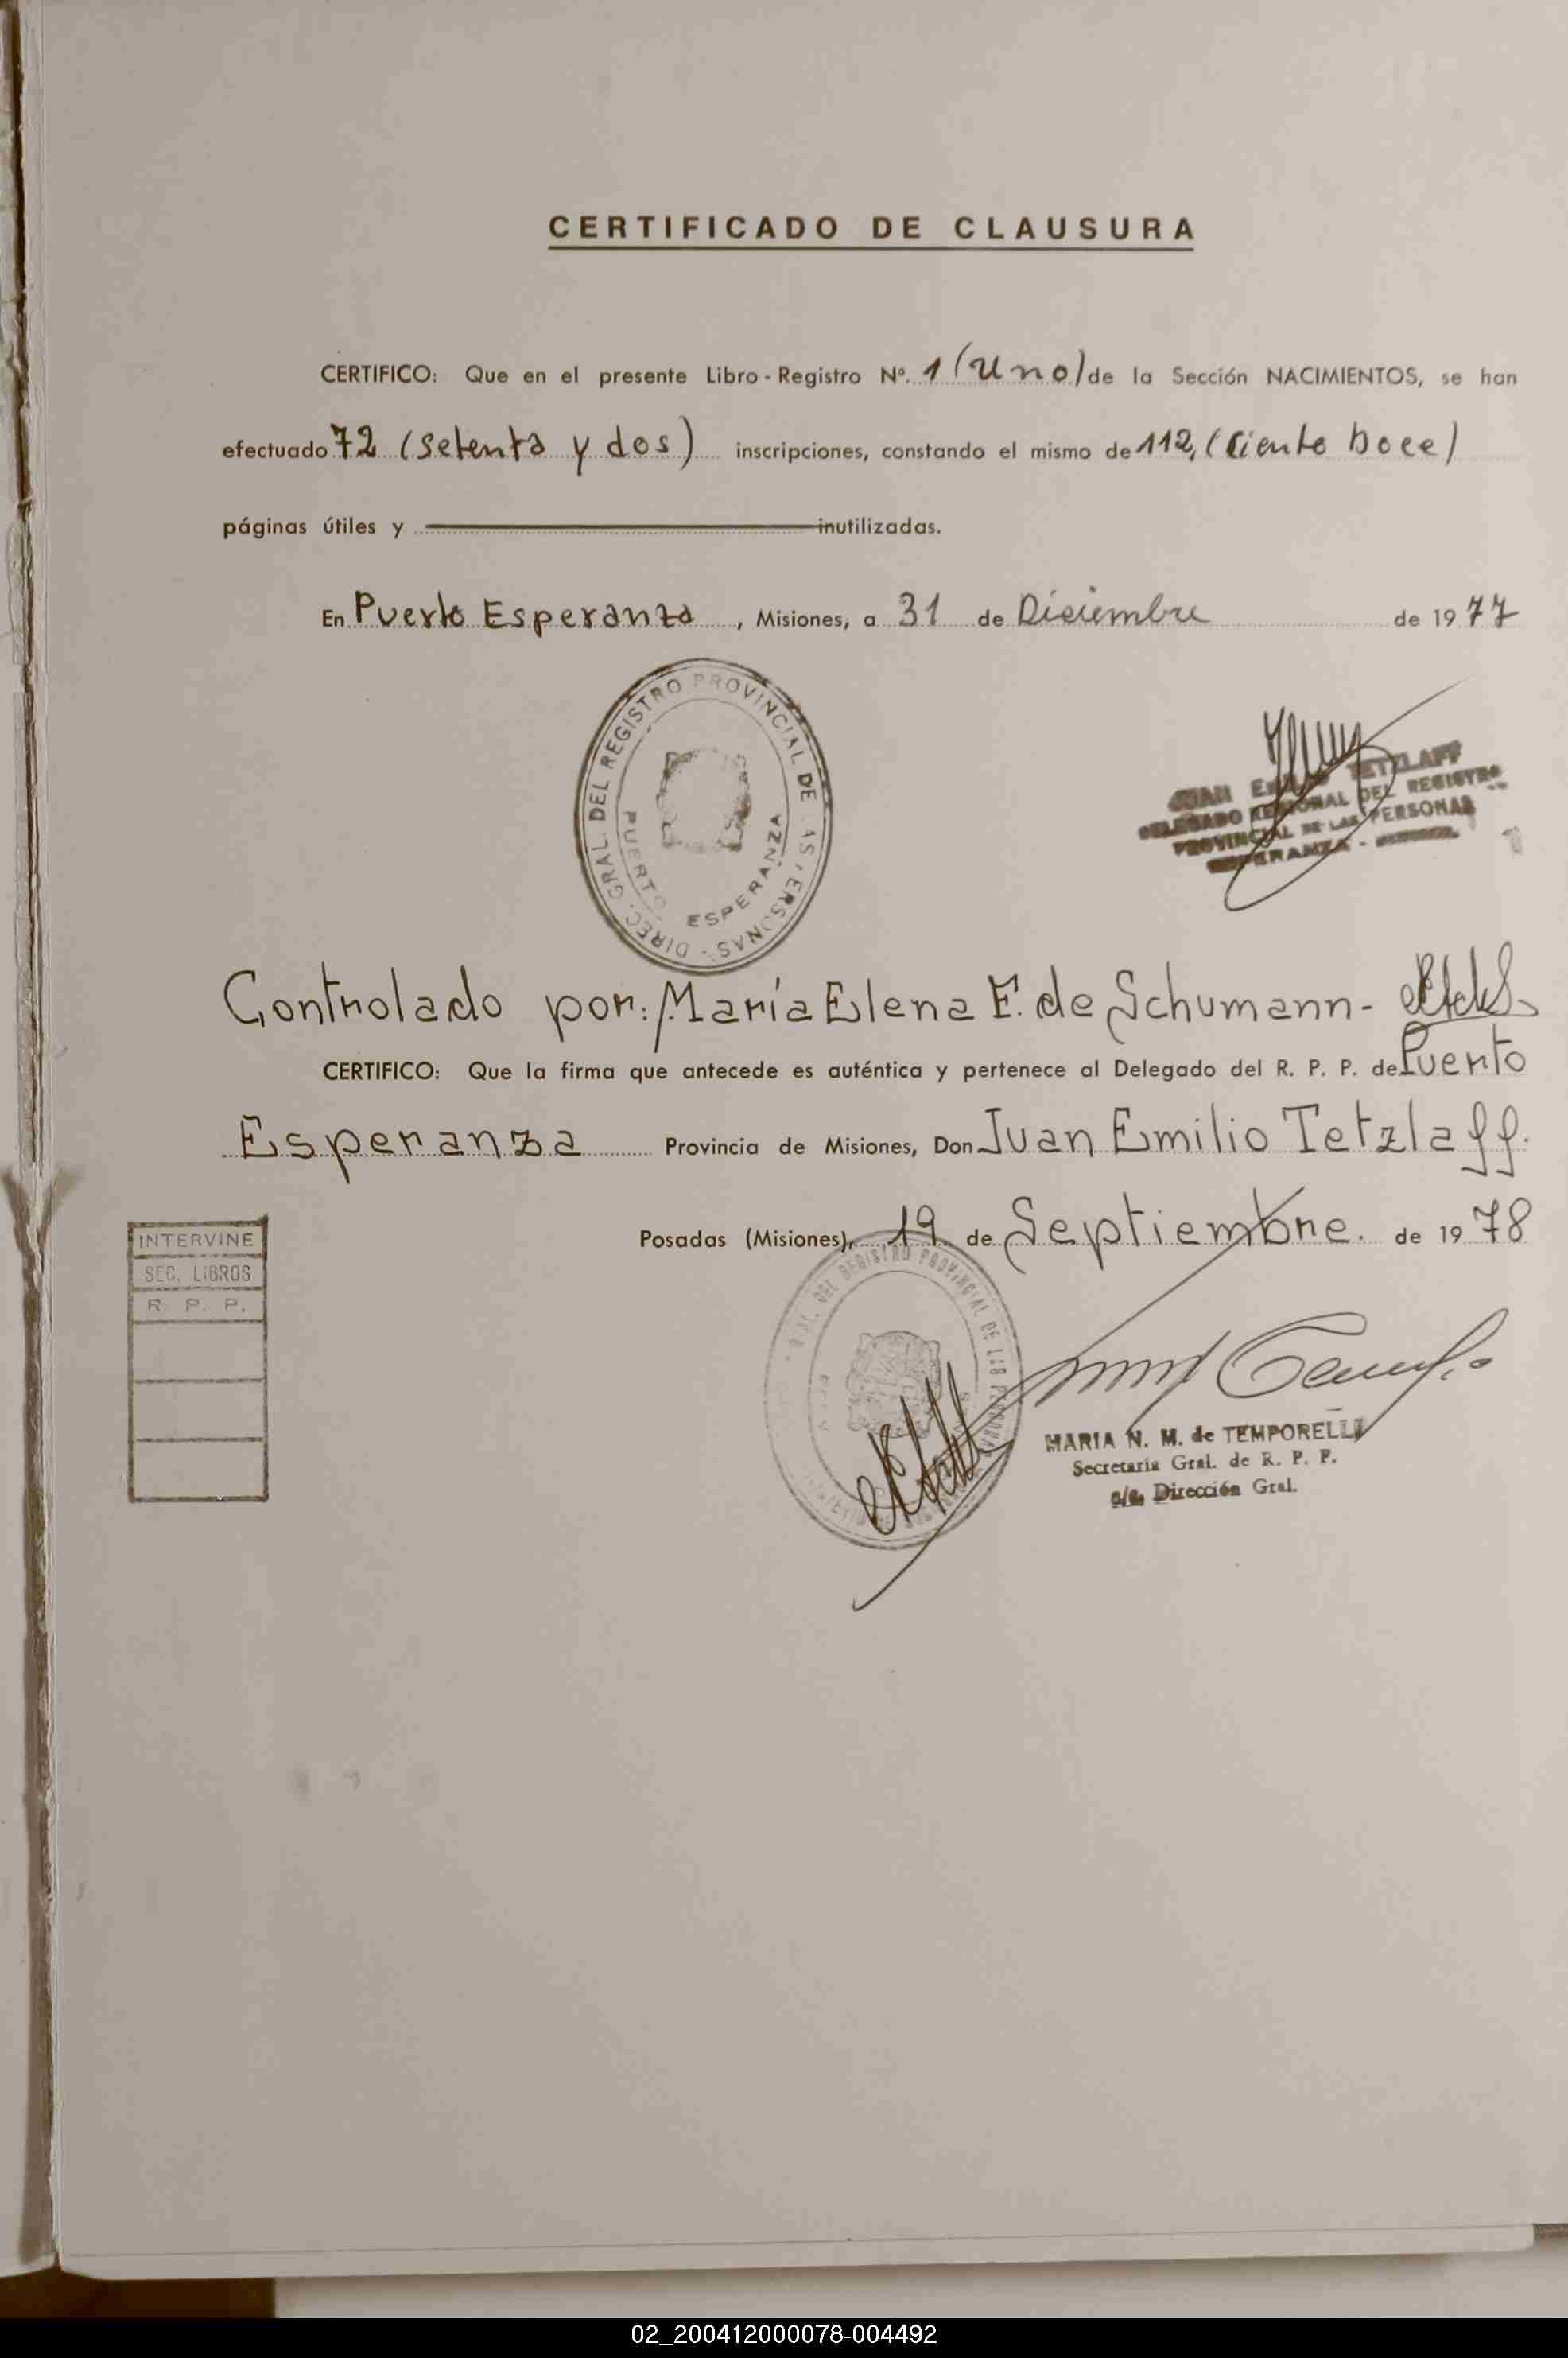 CERTIFICADO DE CLAUSURA
CERTIFICO: Que en el presente Libro - Registro Nº. 1 (Uno) de la Sección NACIMIENTOS, se han
efectuado 72 (setenta y dos) inscripciones, constando el mismo de 112, (Ciento Doce)
páginas útiles y inutilizadas.
En Puerto Esperanza, Misiones, a 31 de Diciembre de 1977
DIREC. GRAL. DEL REGISTRO PROVINCIAL DE LAS PERSONAS -
PUERTO ESPERANZA
JUAN EMILIO TETZLAFF
DELEGADO REGIONAL DEL REGISTRO
PROVINCIAL DE LAS PERSONAS
ESPERANZA -
Controlado por: María Elena F. de Schumann -
CERTIFICO: Que la firma que antecede es auténtica y pertenece al Delegado del R. P. P. de Puerto
Esperanza Provincia de Misiones, Don Juan Emilio Tetzlaff.
Posadas (Misiones), 19 de Septiembre. de 1978
INTERVINE
SEC. LIBROS
R. P. P.
GRAL. DEL REGISTRO PROVINCIAL DE LAS PERSONAS
MARIA N. M. de TEMPORELLI
Secretaria Gral. de R. P. P.
a/c. Dirección Gral.
02_200412000078-004492